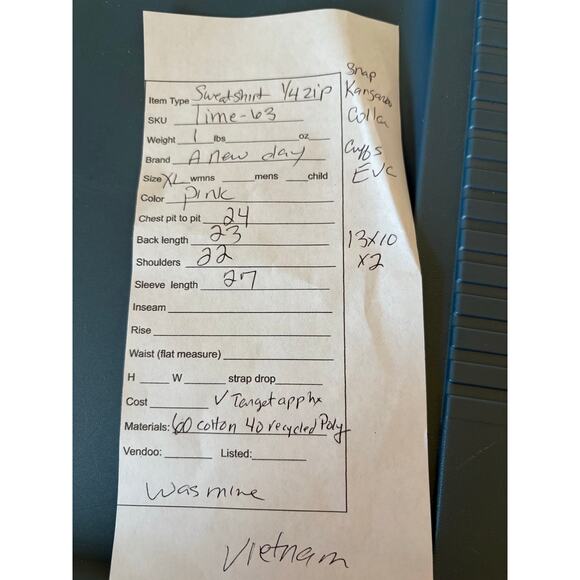 Snap
Kangaroo
Collar
Cuffs
EUC
13x10
x2
Item Type Sweatshirt 1/4 zip
SKU Time-63
Weight 1 lbs oz
Brand A new day
Size XL wmns mens child
Color pink
Chest pit to pit 24
Back length 23
Shoulders 22
Sleeve length 27
Inseam
Rise
Waist (flat measure)
H W strap drop
Cost ✓ Target app hx
Materials: 60 cotton 40 recycled Poly
Vendoo: Listed:
Was mine
Vietnam